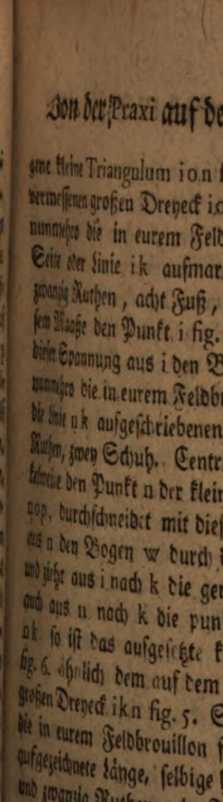 Von der Praxi auf de
gene kleine Triangulum i o n
vermessenen großen Dreyeck i
nunmehro die in eurem Feld
Seite oder Linie i k aufmar
zwanzig Ruthen, acht Fuß,
sem Maaße den Punkt i fig.
dieser Spannung aus i den B
nunmehro die in eurem Feldb
die Linie n k aufgeschriebenen
Ruthen, zwey Schuh. Centr
den Punkt n der klein
nop. durchschneidet mit dies
aus n den Bogen w durch
und ziehet aus i nach k die ger
auch aus n nach k die pun
n k. so ist das aufgesetzte k
fig. 6. ähnlich dem auf dem
großen Dreyeck i k n fig. 5.
die in eurem Feldbrouillon
aufgezeichnete Länge, selbige
und zwanzig